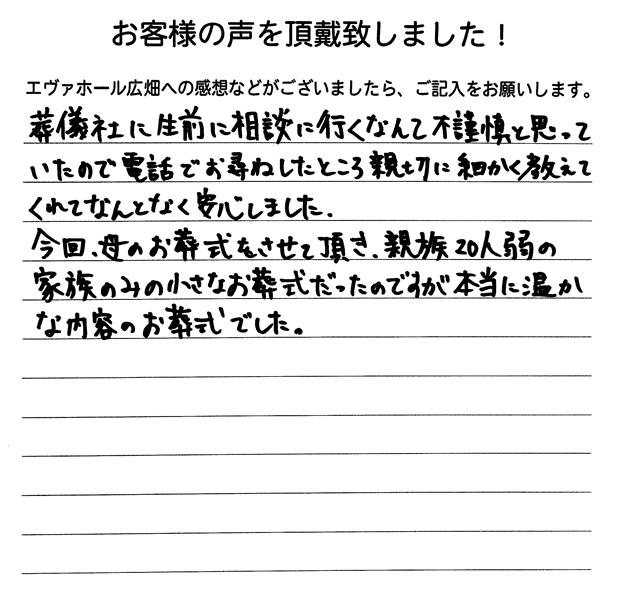 お客様の声を頂戴致しました！
エヴァホール広畑への感想などがございましたら、ご記入をお願いします。
葬儀社に生前に相談に行くなんて不謹慎と思って
いたので電話でお尋ねしたところ親切に細かく教えて
くれてなんとなく安心しました.
今回、母のお葬式をさせて頂き、親族20人弱の
家族のみの小さなお葬式だったのですが本当に温か
な内容のお葬式でした。